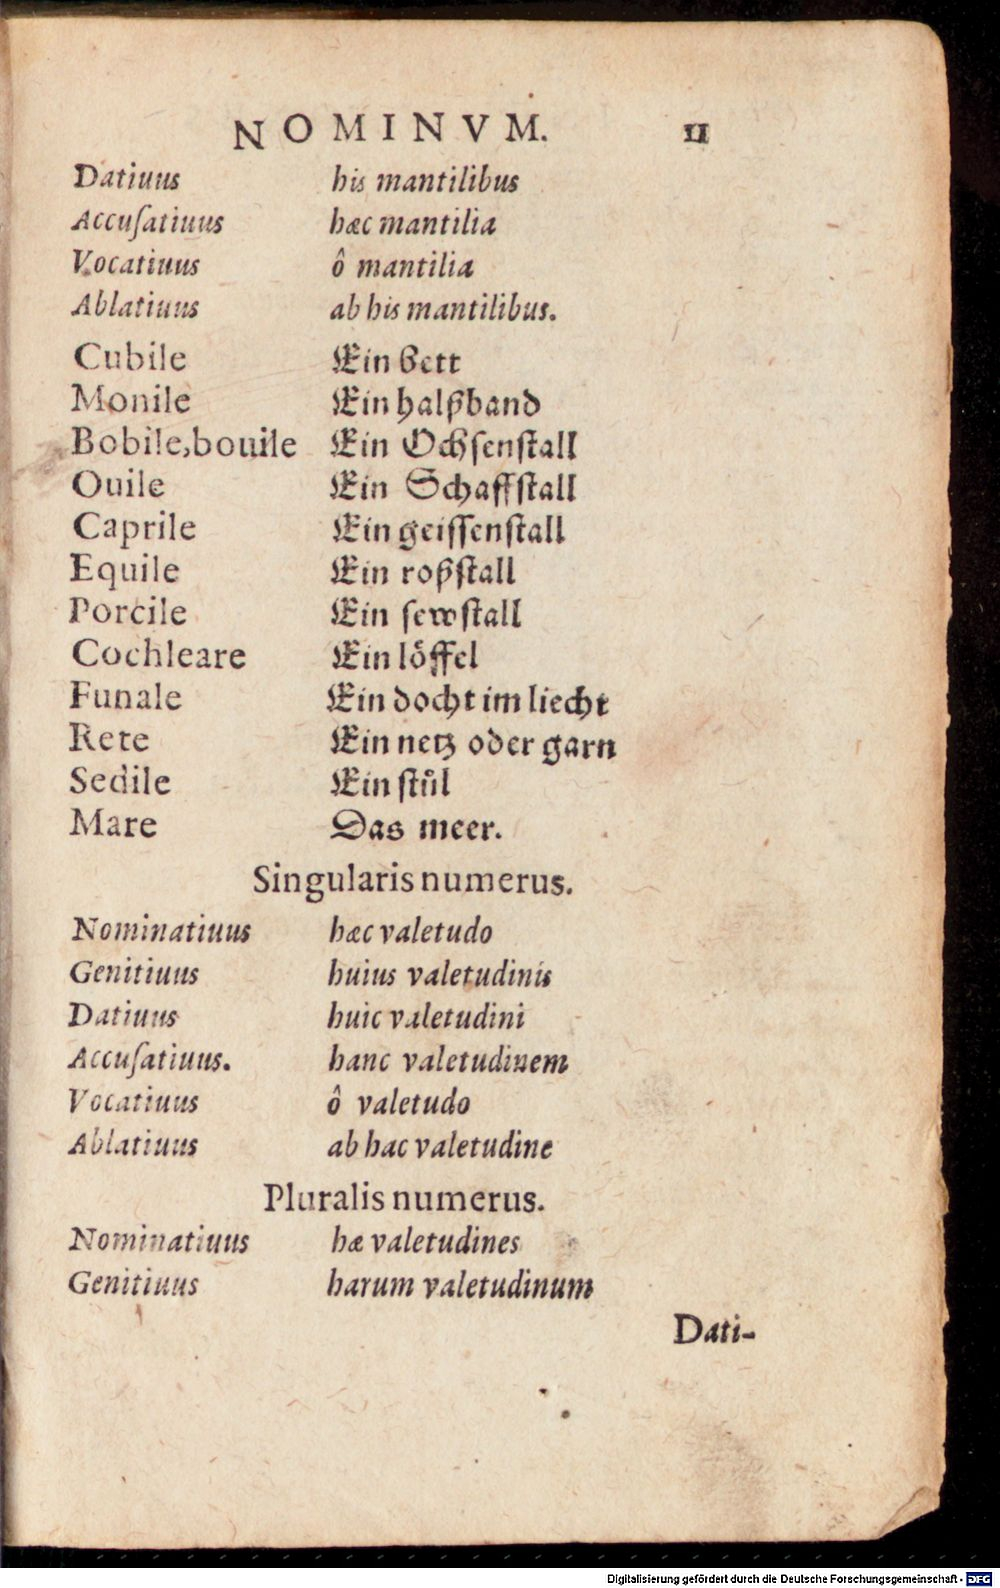 NOMINVM. 11
Datiuus his mantilibus
Accuſatiuus hæc mantilia
Vocatiuus ô mantilia
Ablatiuus ab his mantilibus.
Cubile Ein bett
Monile Ein halßband
Bobile,bouile Ein Ochſenſtall
Ouile Ein Schaffſtall
Caprile Ein geiſſenſtall
Equile Ein roßſtall
Porcile Ein ſewſtall
Cochleare Ein löffel
Funale Ein docht im liecht
Rete Ein netz oder garn
Sedile Ein ſtůl
Mare Das meer.
Singularis numerus.
Nominatiuus hæc valetudo
Genitiuus huius valetudinis
Datiuus huic valetudini
Accuſatiuus. hanc valetudinem
Vocatiuus ô valetudo
Ablatiuus ab hac valetudine
Pluralis numerus.
Nominatiuus hæ valetudines
Genitiuus harum valetudinum
Dati-
Digitalisierung gefördert durch die Deutsche Forschungsgemeinschaft - DFG